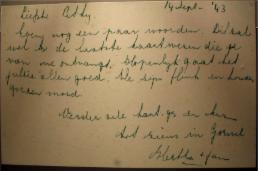 14 Sept - '43
Liefste Cathy.
Even nog een paar woorden. Dit zal
wel de laatste kaart weren die ge
van me ontvangt. Hopenlijk gaat het
jullie allen goed. We zijn flink en houden
goeden moed.
Verder vele hart. gr. en
tot ziens in Gorssel